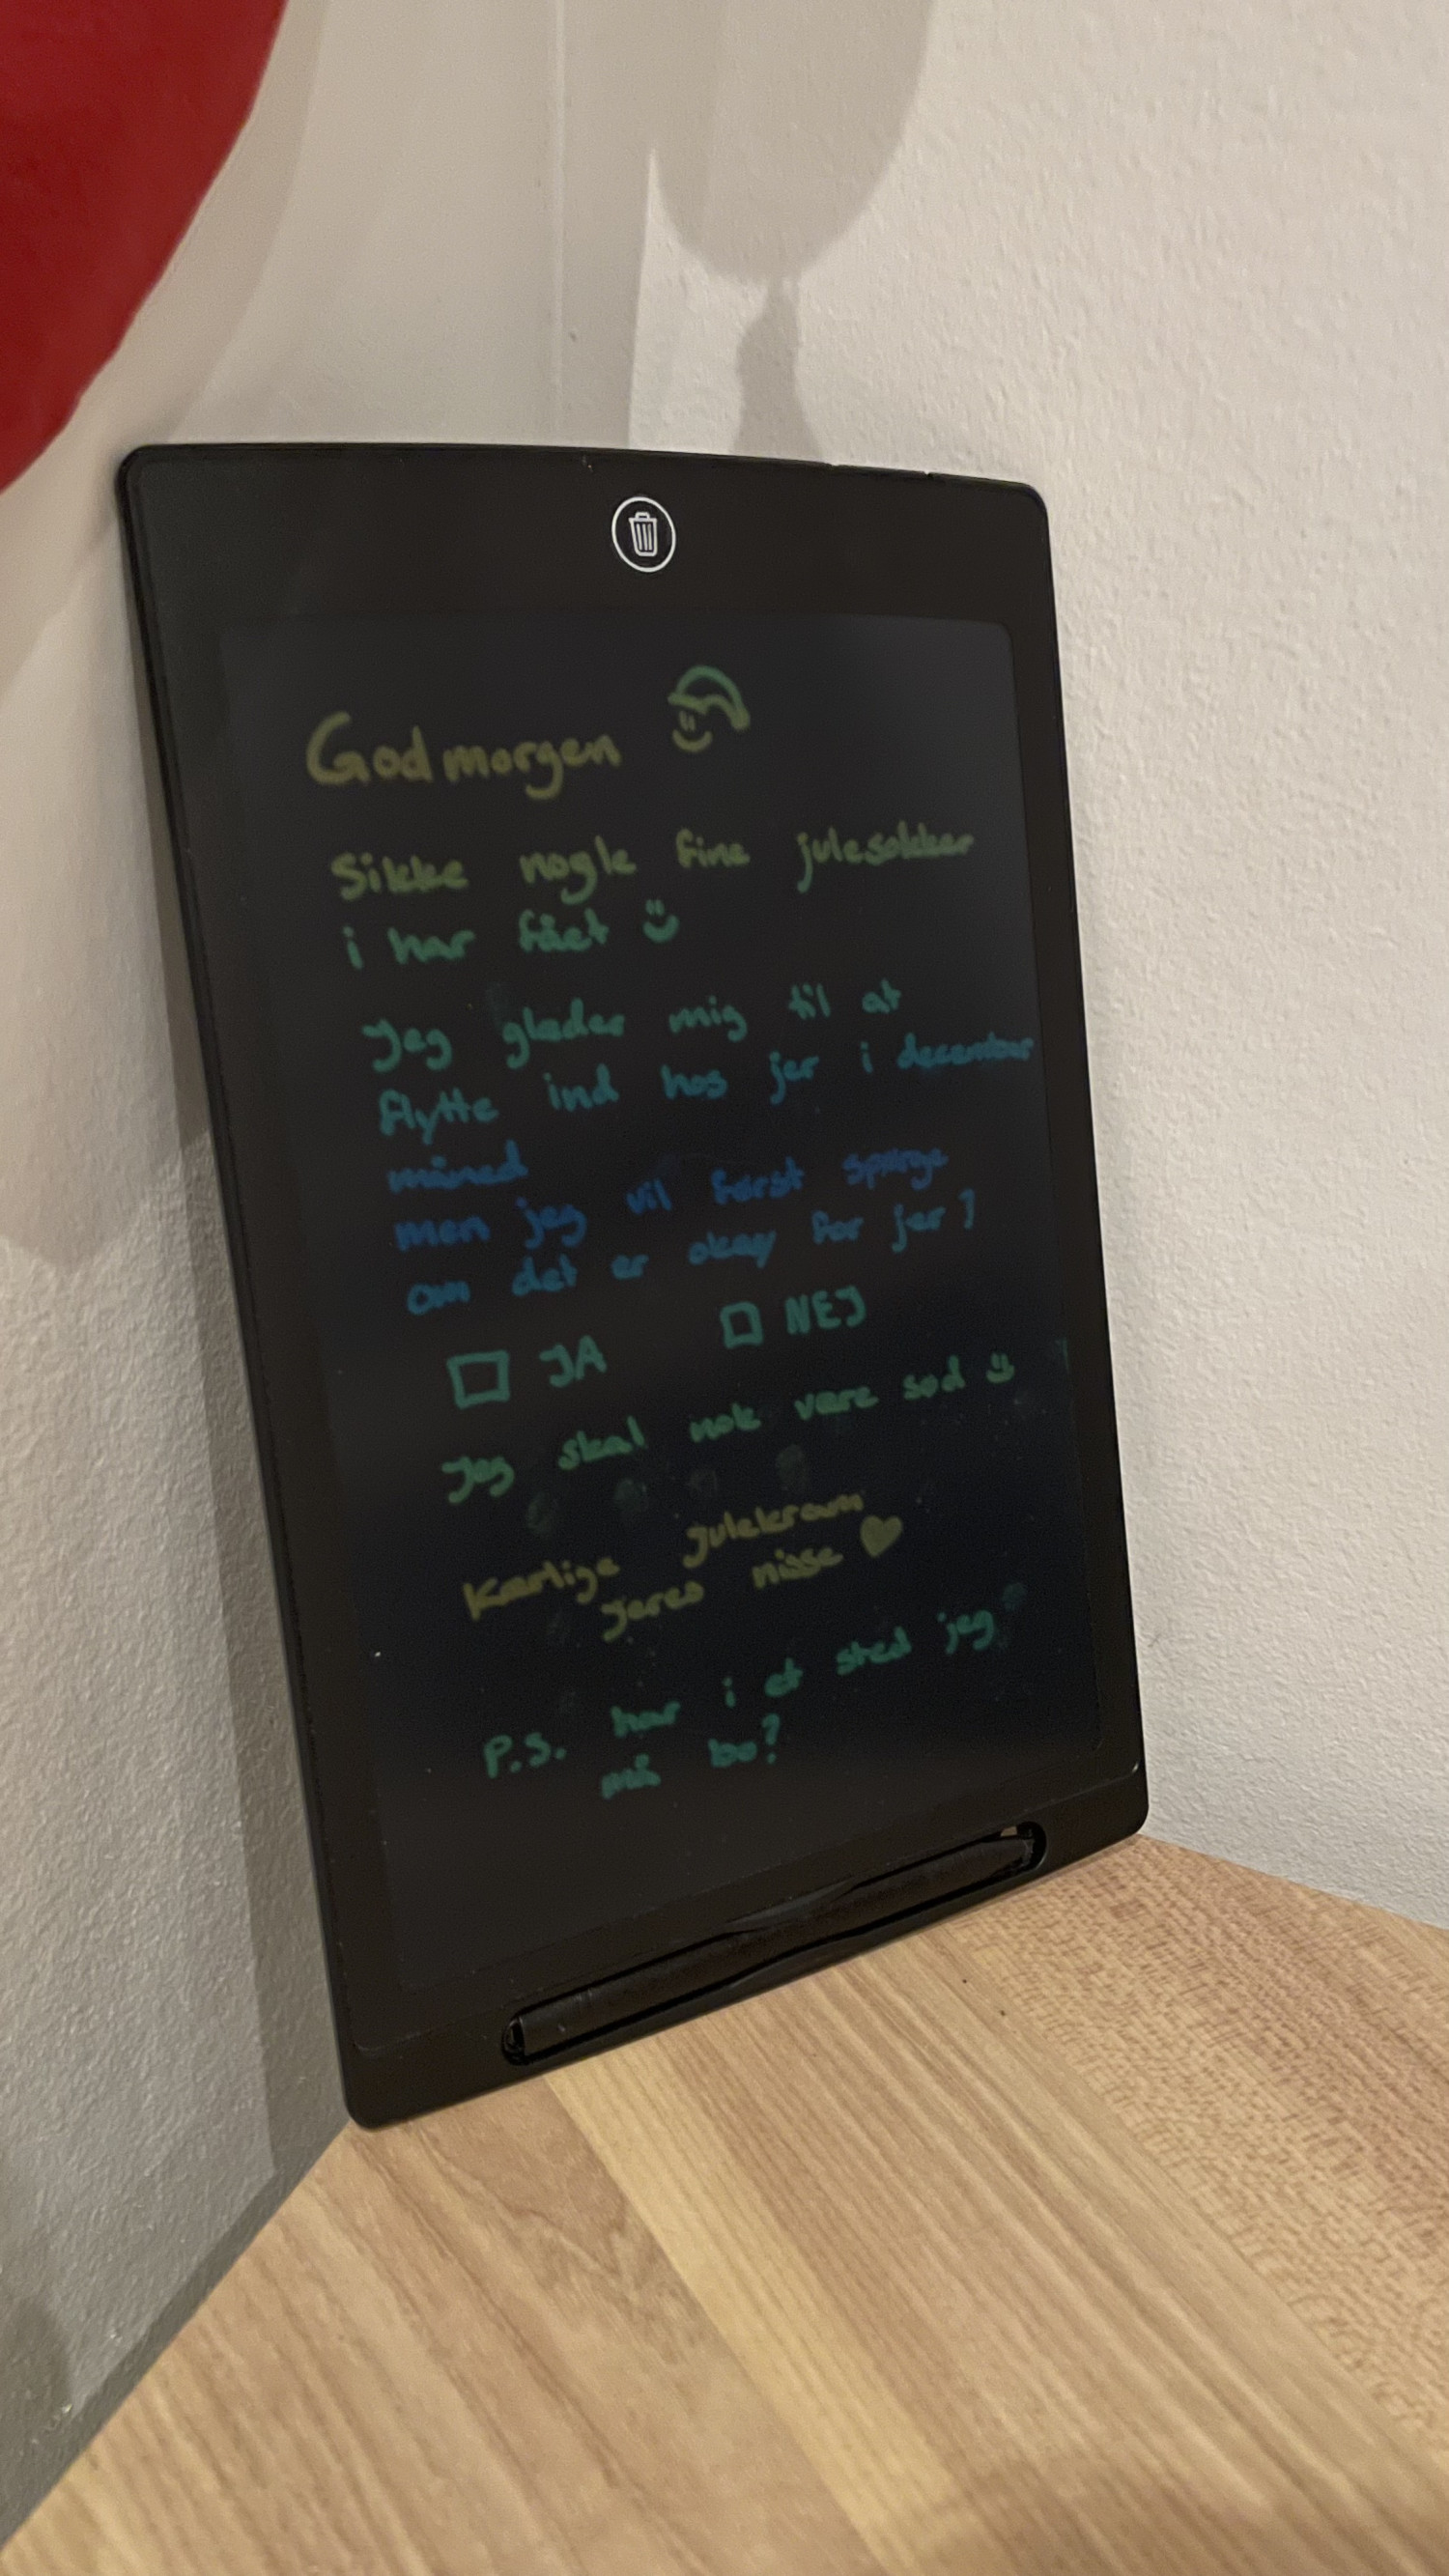 Godmorgen
Sikke nogle fine julesokker
i har fået
Jeg glæder mig til at
flytte ind hos jer i december
måned
men jeg vil først spørge
om det er okay for jer?
JA NEJ
Jeg skal nok være sød
Kærlige julekram
Jeres nisse
P.S. har i et sted jeg
må bo?